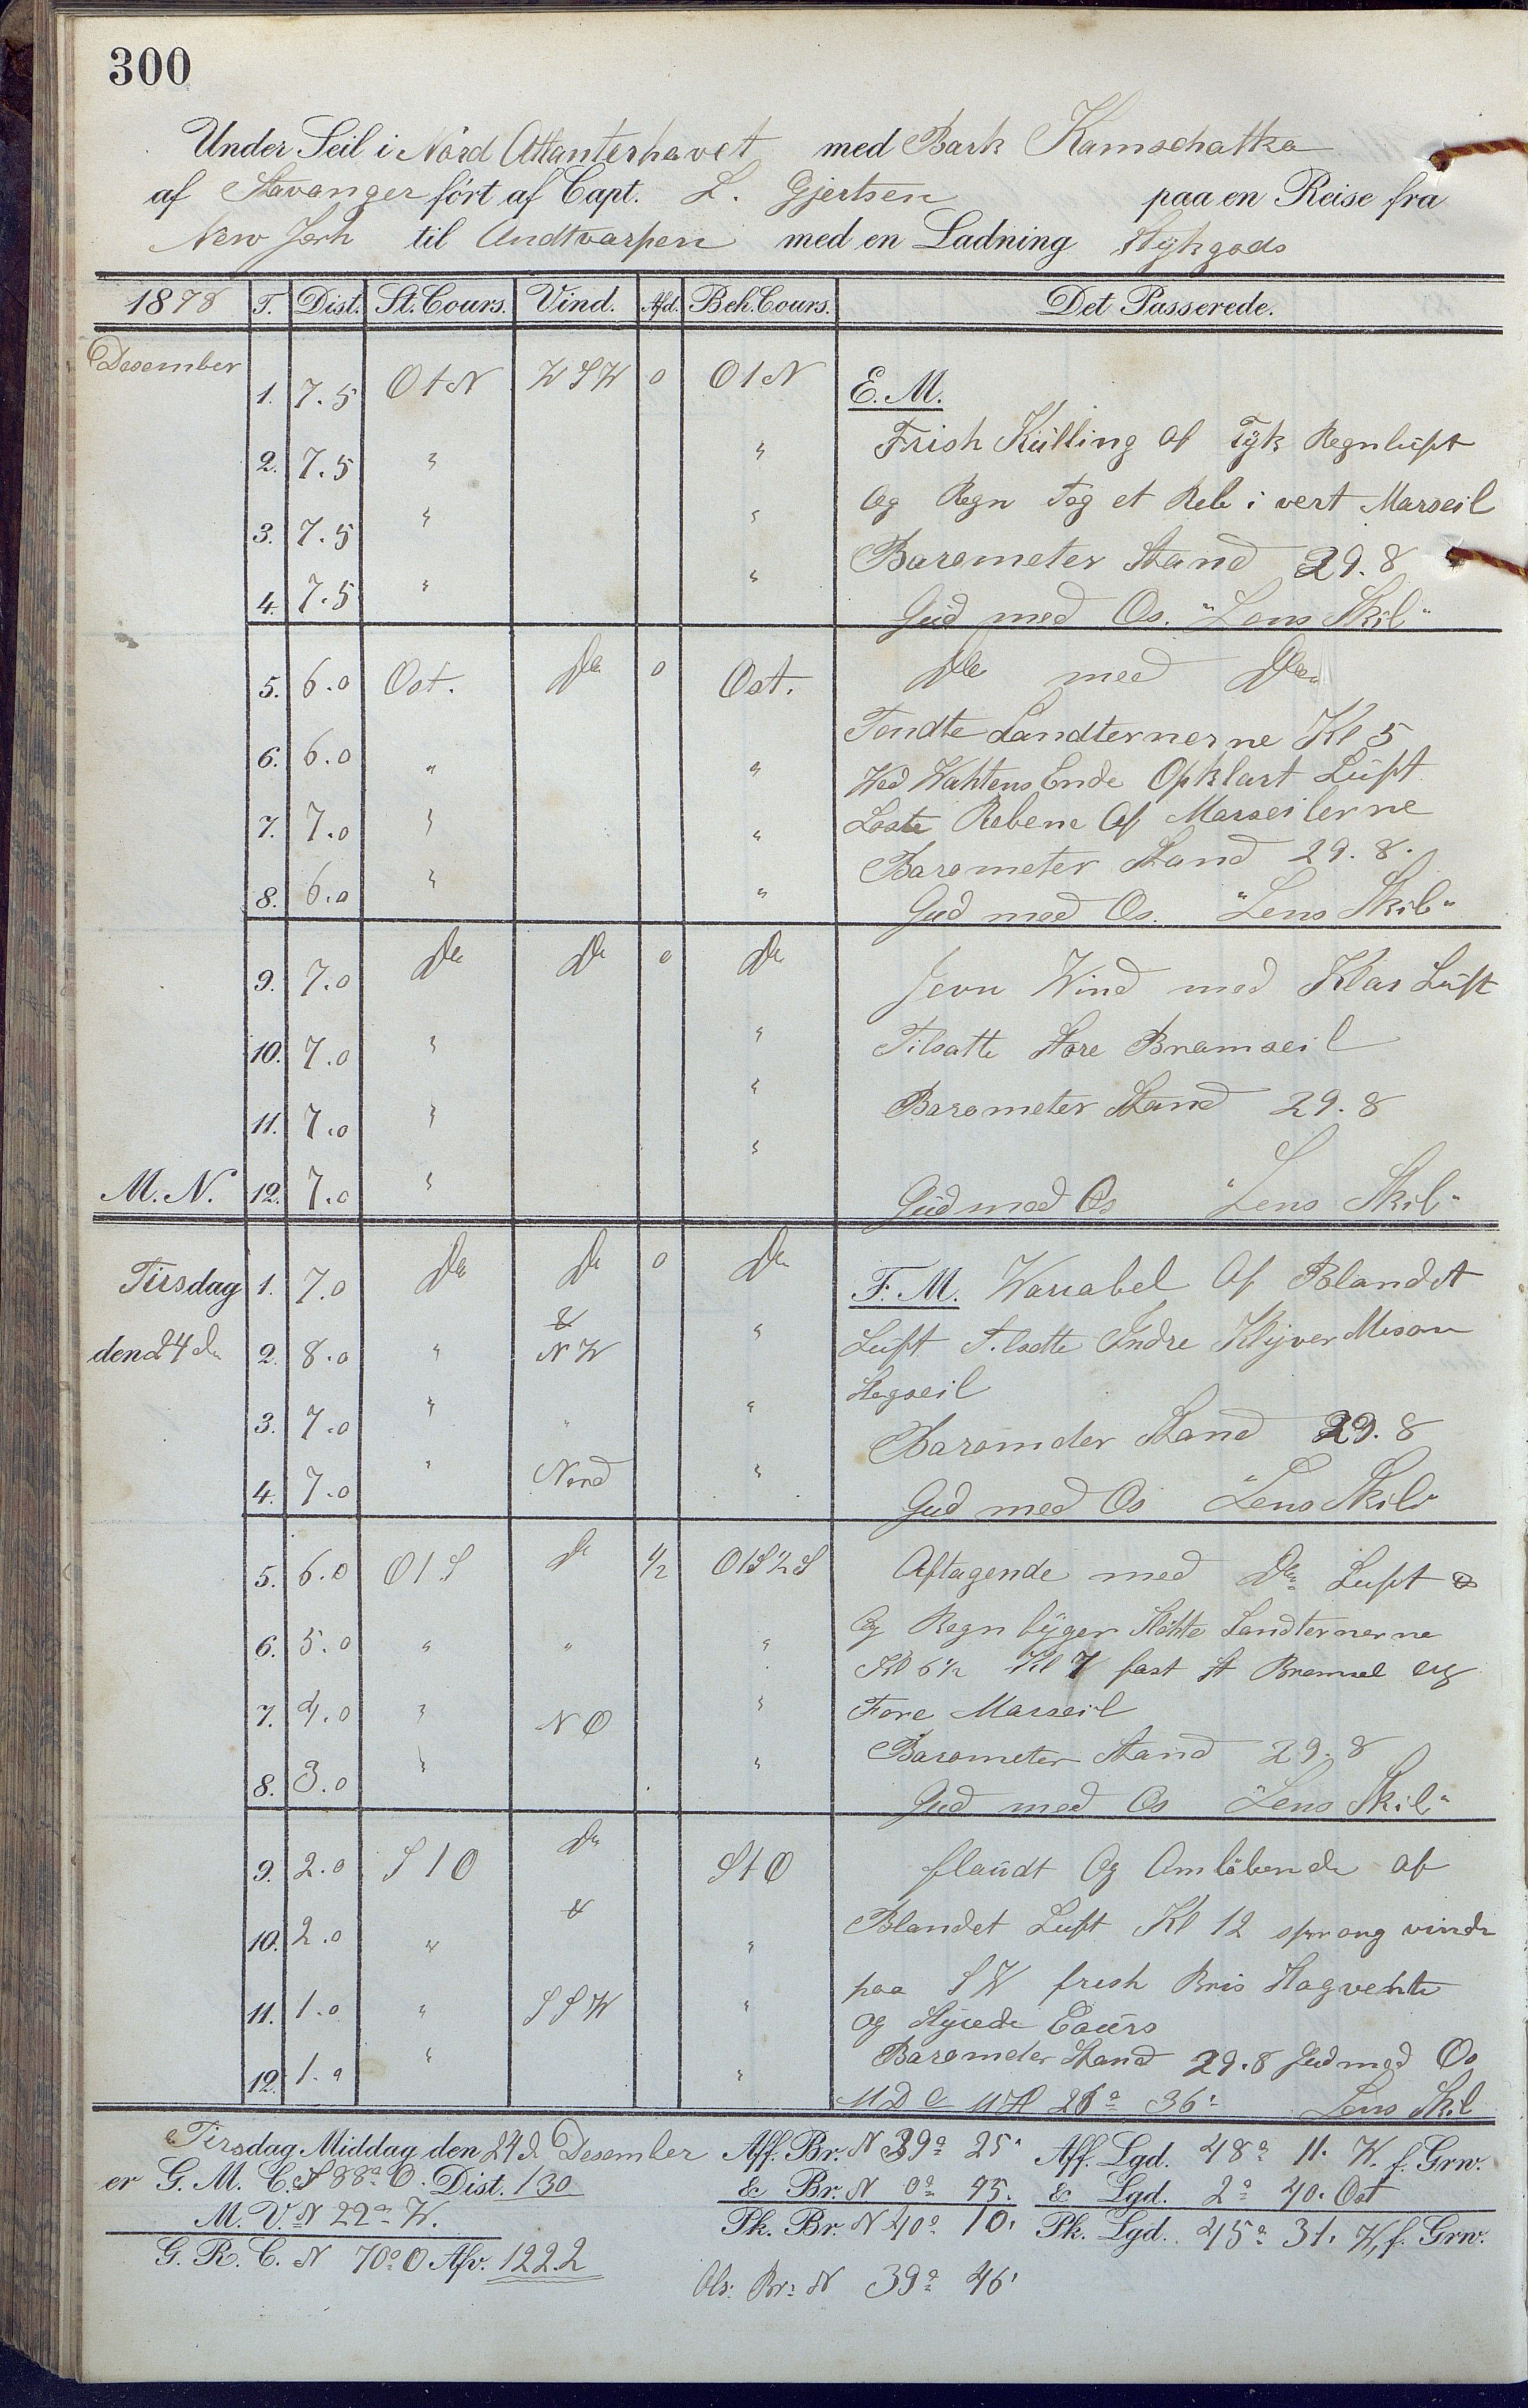 300
Under Seil i Nord Atlanterhavet med Bark Kamschatka
af Stavanger ført af Capt. L. Gjertsen paa en Reise fra
New Jork til Andtvarpen med en Ladning Stykgods
1878 T. Dist. St. Cours. Vind. Afd. Beh. Cours. Det Passerede.
Desember 1. 7.5 O t N W S W 0 O t N E. M.
2. 7.5 " " Frish Külling Af Tyk Regnlüft
3. 7.5 " " Og Regn Tog et Reb i vert Marseil
4. 7.5 " " Barometer Stand 29.8
Gud med Os. "Lens Skib"
5. 6.0 Ost. Do 0 Ost. Do med Do
6. 6.0 " " Tendte Landternerne Kl 5
Wed Wahtens Ende Opklart Lüft
7. 7.0 " " Loste Rebene Af Marseilerne
Barometer Stand 29.8.
8. 6.0 " " Gud med Os. "Lens Skib"
9. 7.0 Do Do 0 Do Jevn Wind med Klar Lüft
10. 7.0 " " Tilsatte Store Bramseil
11. 7.0 " " Barometer Stand 29.8
M. N. 12. 7.0 " " Gud med Os "Lens Skib"
Tirsdag 1. 7.0 Do Do 0 Do F. M. Wariabel Af Blandet
den 24 de 2. 8.0 " & N W " Lüft Tilsatte Indre Klyver Mesan
Stagseil
3. 7.0 " " " Baromder Stand 29.8
4. 7.0 " Nord " Gud med Os "Lens Skib"
5. 6.0 O t S Do 1/2 O t S 1/2 S Aftagende med Do Luft
6. 5.0 " " " Og Regn byger Slökte Landternerne
Kl 6 1/2 Kl 7 fast St Bramsel og
7. 4.0 " N O " Fore Marseil
Barometer Stand 29.8
8. 3.0 " " Gud med Os "Lens Skib"
9. 2.0 S t O Do S t O flaüdt Og Omlöbende af
10. 2.0 " & " Blandet Luft Kl 12 sprang vinde
paa S W fresh Bris Hagvehte
11. 1.0 " S S W " og Styrede Coürs
Baromder Stand 29.8 Gud med Os
12. 1.0 " " 26° 36' Lens Skib
Tirsdag Middag den 24 d Desember Aff. Br. N 39° 25' Aff. Lgd. 48° 11. W. f. Grw.
er G. M. C. S 88° O. Dist. 130 & Br. N 0° 45. & Lgd. 2° 40. Ost
M. V. N 22° W. Pk. Br. N 40° 10' Pk. Lgd. 45° 31. W. f. Grw.
G. R. C. N 70° O Afv. 122.2
Obs: Br: N 39° 46'